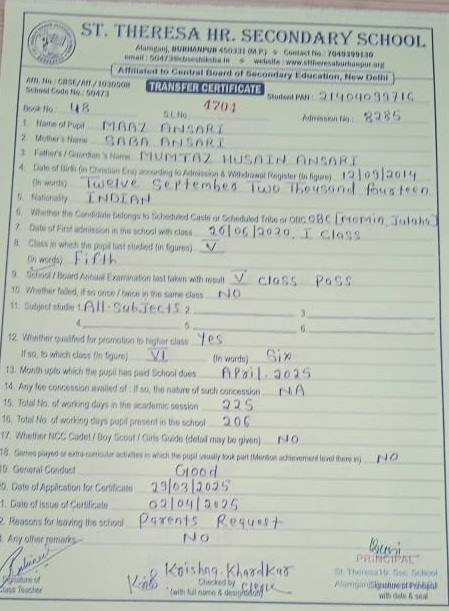 ST. THERESA HR. SECONDARY SCHOOL
Alamganj, BURHANPUR 450331 (M.P.) Contact No.: 7049399130
email: 50473@cbseshiksha.in website: www.sttheresaburhanpur.org
Affiliated to Central Board of Secondary Education, New Delhi
Affi. No.: CBSE/Aff./1030508
School Code No.: 50473
TRANSFER CERTIFICATE
Student PAN:
Book No. 48 S.L.No. 4701 Admission No. 8285
1. Name of Pupil MAAZ ANSARI
2. Mother's Name SABA ANSARI
3. Father's / Guardian's Name MUMTAZ HUSAIN ANSARI
4. Date of Birth (in Christian Era) according to Admission & Withdrawal Register (in figure) 12/09/2014
(in words) Twelve September Two Thousand fourteen
5. Nationality INDIAN
6. Whether the Candidate belongs to Scheduled Caste or Scheduled Tribe or OBC OBC [Momin, Julaha]
7. Date of First admission in the school with class 26/06/2020, I Class
8. Class in which the pupil last studied (in figures) V
(in words) Fifth
9. School / Board Annual Examination last taken with result V Class Pass
10. Whether failed, if so once / twice in the same class NO
11. Subject studie 1. All Subjects 2. 3.
4. 5. 6.
12. Whether qualified for promotion to higher class Yes
If so, to which class (in figure) VI (in words) Six
13. Month upto which the pupil has paid School dues April 2025
14. Any fee concession availed of : If so, the nature of such concession NA
15. Total No. of working days in the academic session 225
16. Total No. of working days pupil present in the school 206
17. Whether NCC Cadet / Boy Scout / Girls Guide (detail may be given) NO
18. Games played or extra-curricular activities in which the pupil usually took part (Mention achievement level there in) NO
19. General Conduct Good
0. Date of Application for Certificate 29/03/2025
1. Date of issue of Certificate 02/04/2025
2. Reasons for leaving the school Parents Request
3. Any other remarks NO
Signature of
Class Teacher
Krishna Khardkar
Checked by
(with full name & designation)
PRINCIPAL
St. Theresa Hr. Sec. School
Signature of Principal
with date & seal